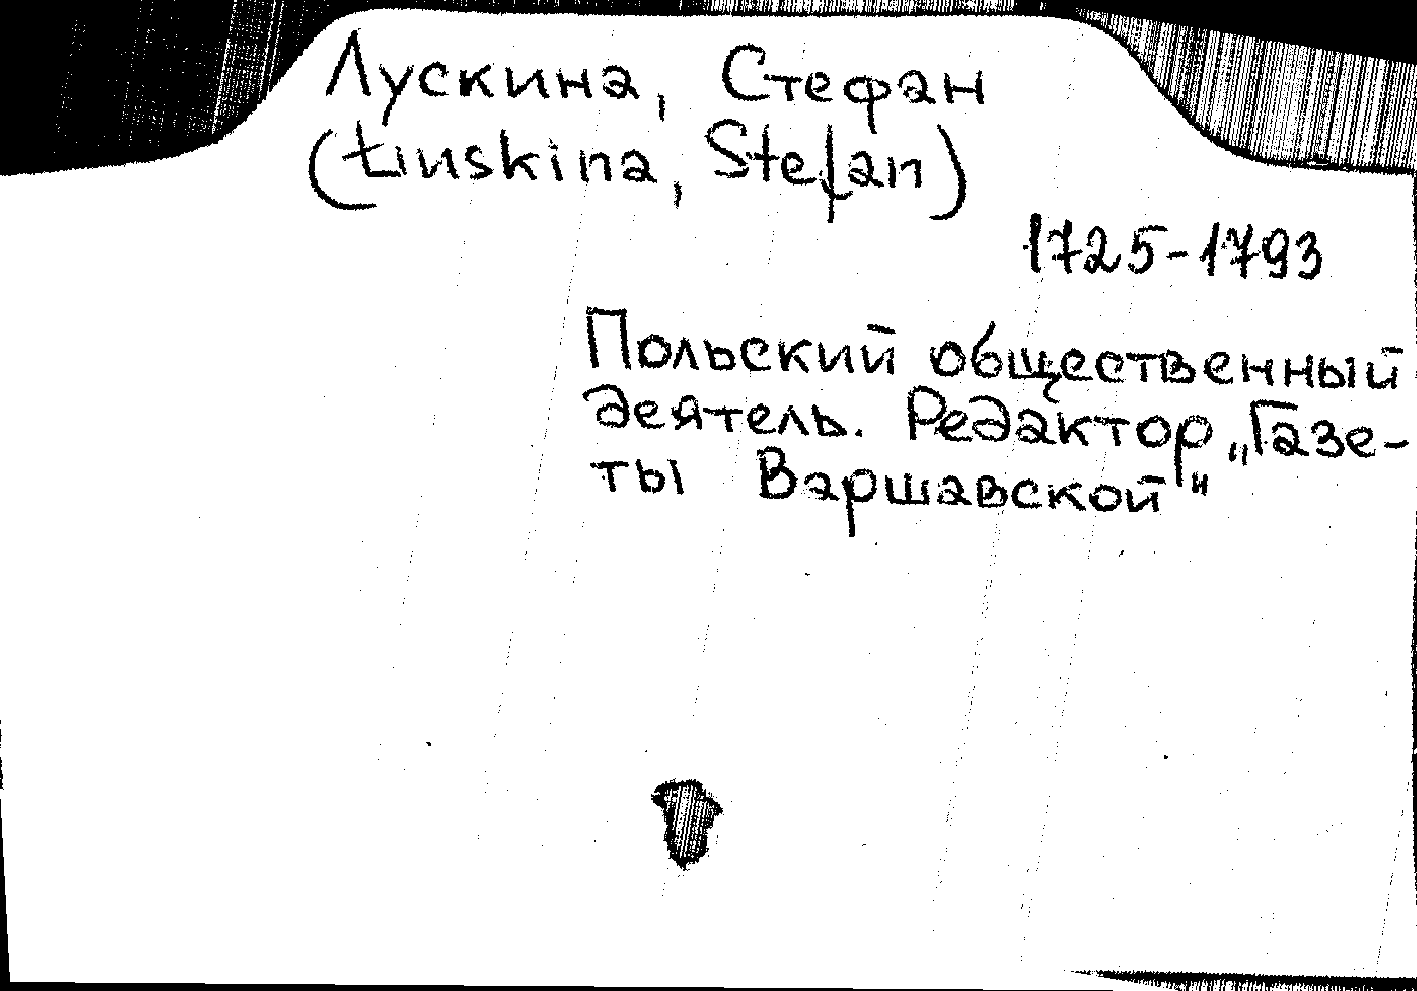 Лускина, Стефан
(Łuskina, Stefan)
1725-1793
Польский общественный
деятель. Редактор „Газе-
ты Варшавской"